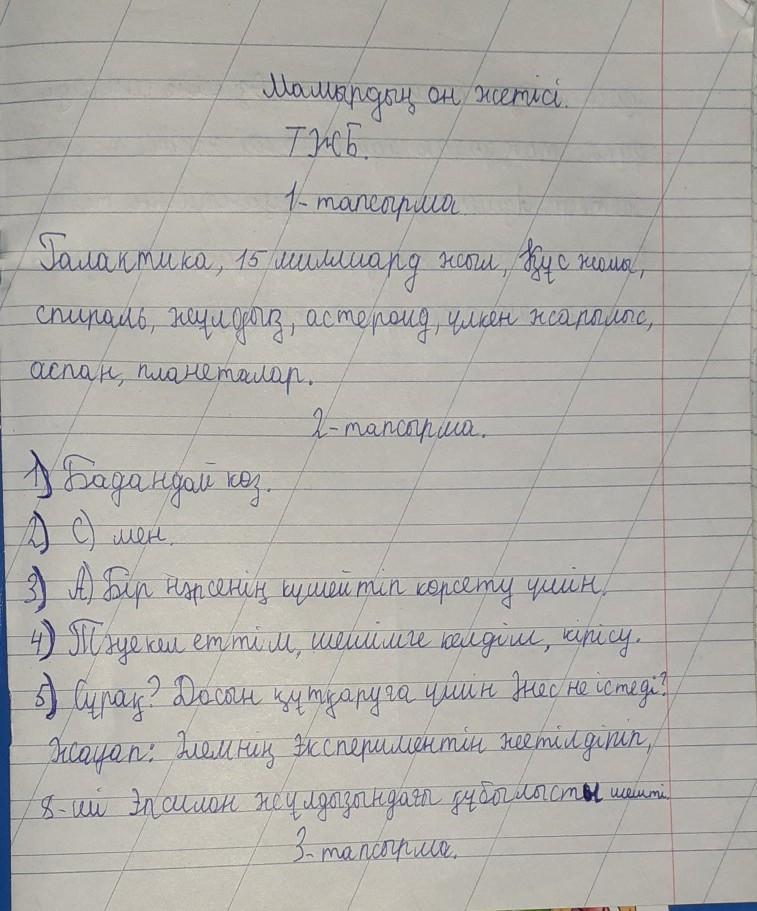 Мамырдың он жетісі.
ТЖБ.
1-тапсырма
Галактика, 15 миллиард жыл, Құс жолы,
спираль, жұлдыз, астероид, үлкен жарылыс,
аспан, планеталар.
2-тапсырма.
1) Бадандай көз.
2) С) мен.
3) А) Бір нәрсенің күшейтіп көрсету үшін.
4) Тәуекел еттім, шешімге келдім, кірісу.
5) Сұрақ? Досын құтқаруға үшін Энес не істеді?
Жауап: Әлемнің экспериментін жетілдіріп,
8-ші Эпсилон жұлдызындағы құбылысты шешті
3-тапсырма.